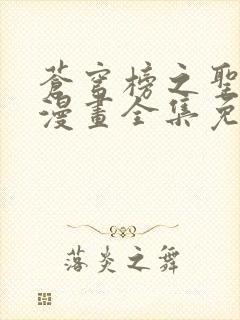 蒼穹榜之聖
漫畫全集免
落炎之舞